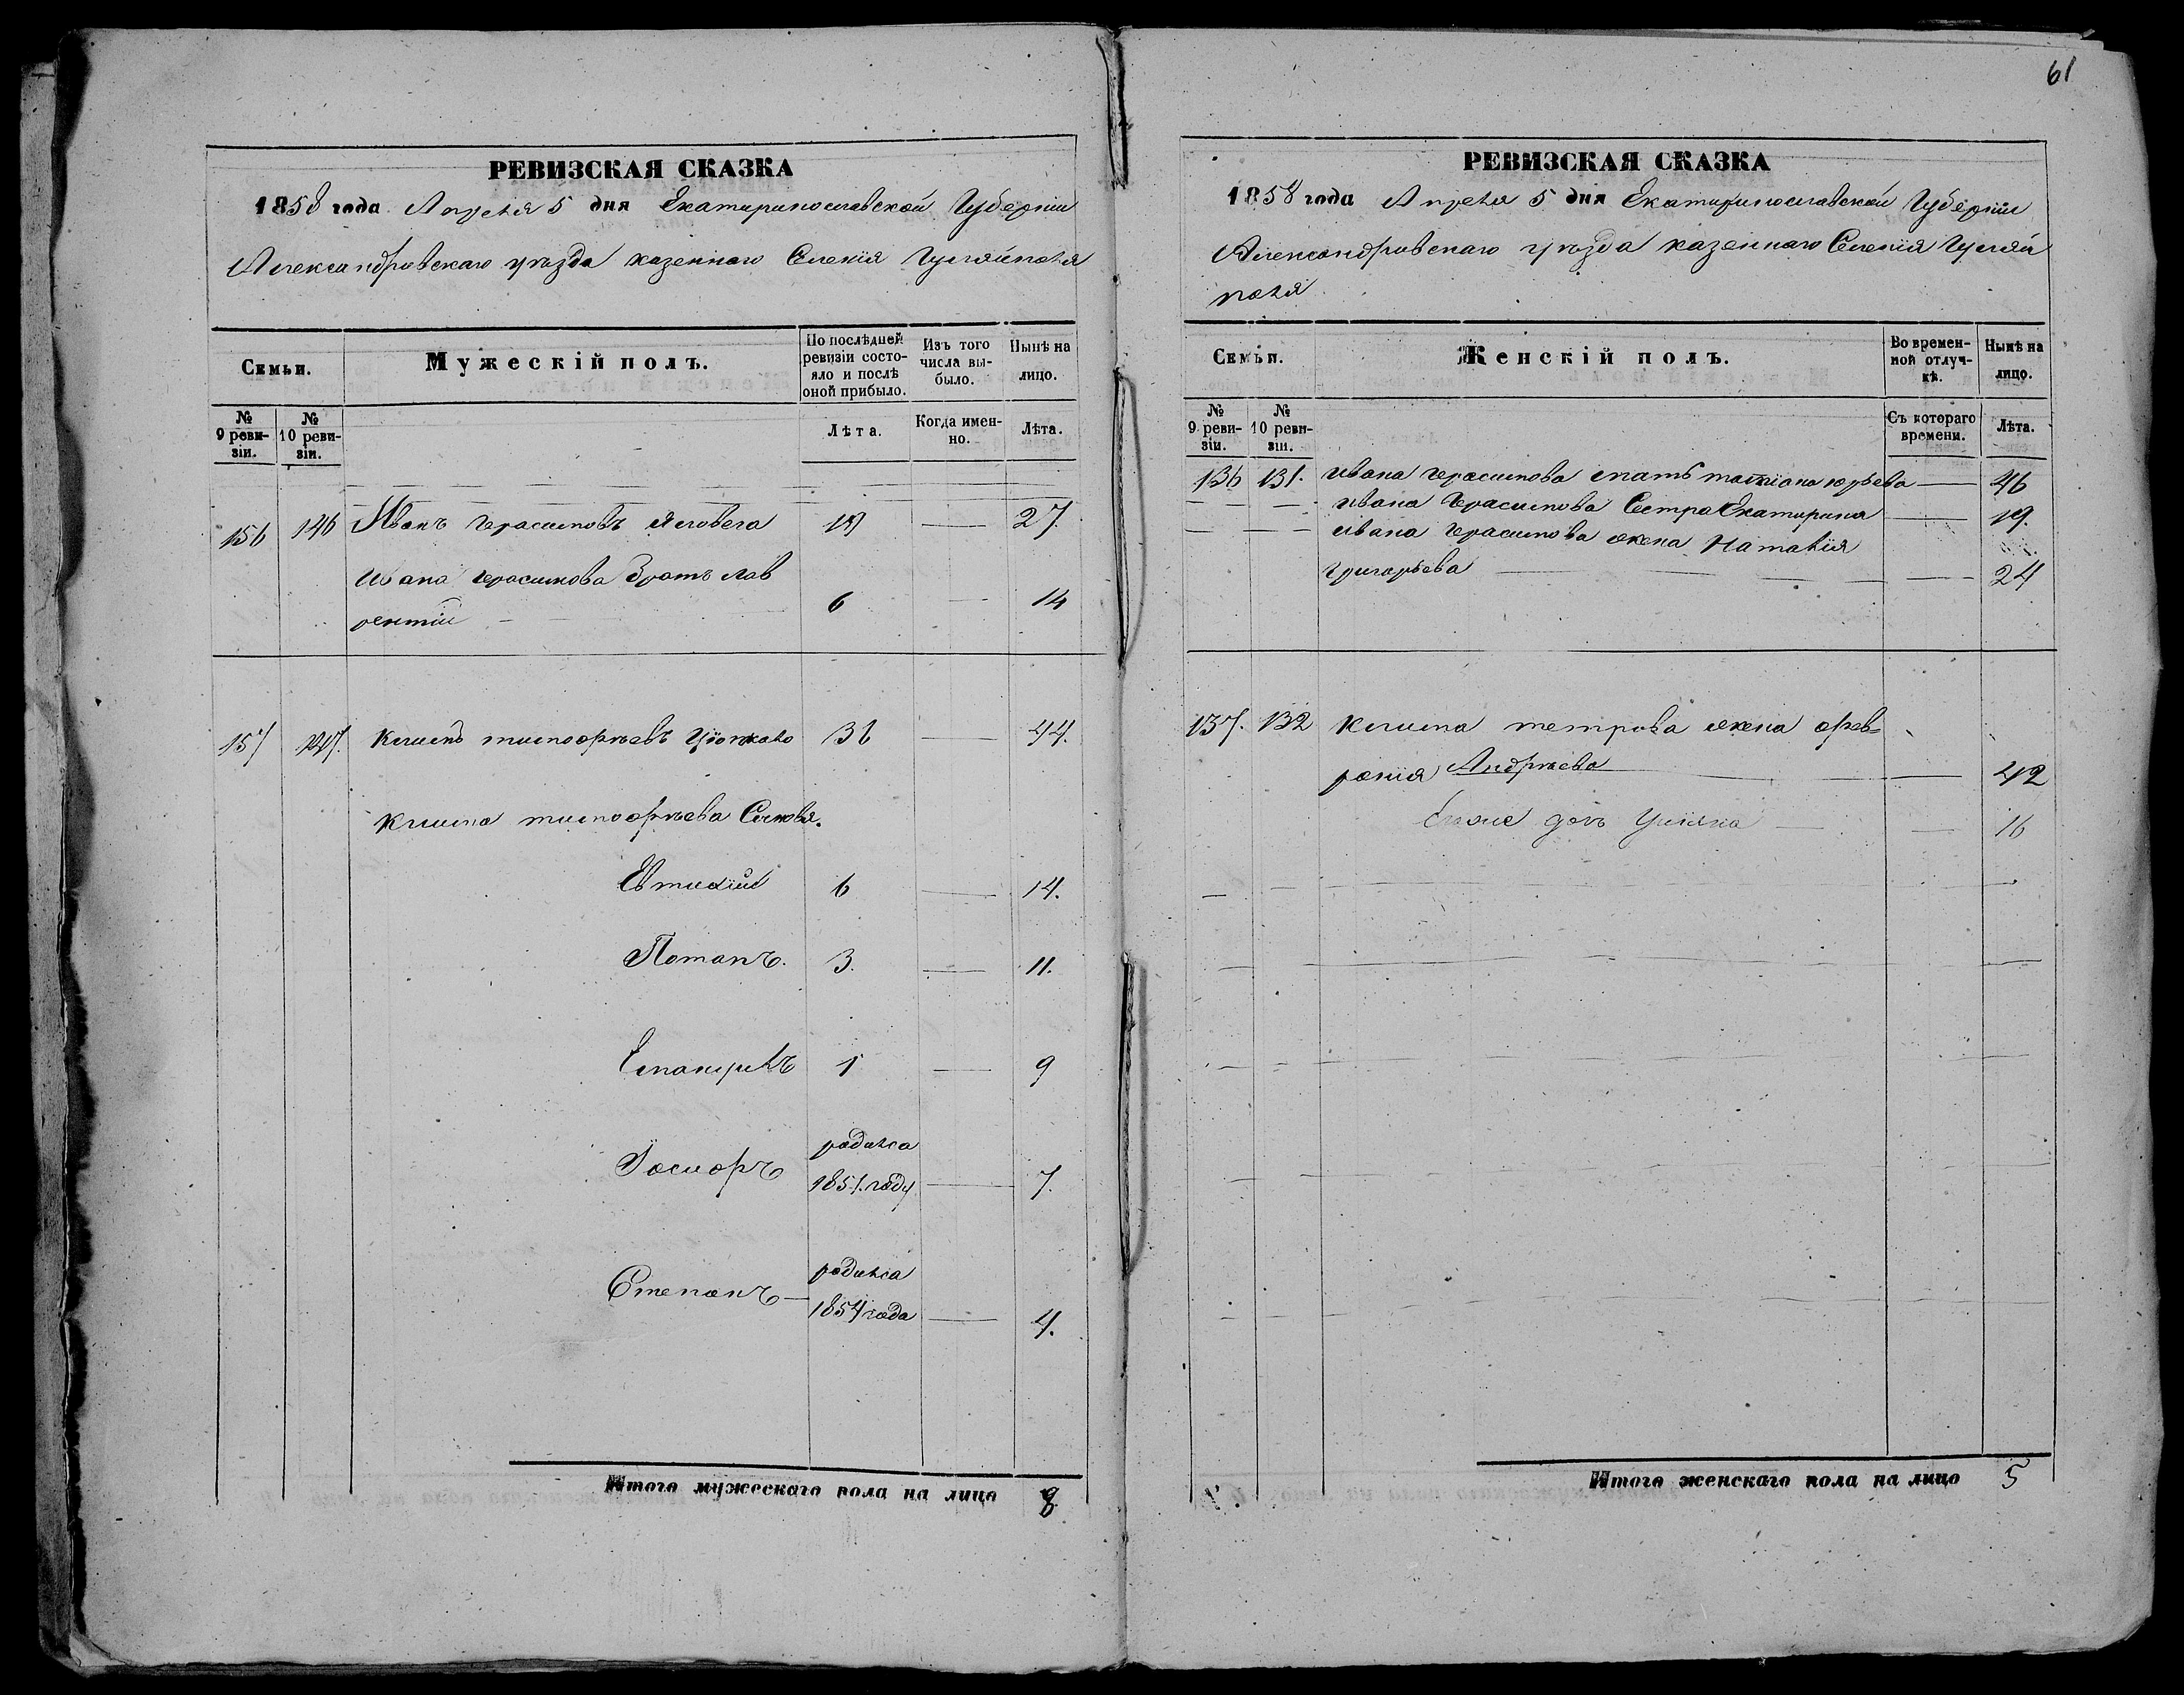 РЕВИЗСКАЯ СКАЗКА
1858 года Апреля 5 дня Екатеринославской Губерніи
Александровскаго уѣзда казеннаго Селенія Гуляйполя
Семьи.
Мужескій полъ.
По послѣдней ревизіи состояло и послѣ оной прибыло.
Изъ того числа выбыло.
Нынѣ на лицо.
№ 9 ревизіи.
№ 10 ревизіи.
Лѣта.
Когда именно.
Лѣта.
156 146 Иванъ Герасимовъ 19 — 27.
Ивана Герасимова Братъ Лав
рентій 6 — 14
157 147. Климъ Тимофѣевъ 36 — 44.
Клима Тимофѣева Сыновья.
Евтихій 6 — 14.
Потапъ. 3. — 11.
Емануилъ 1 — 9
Іосифъ родился
1851. году — 7.
Степанъ — родился
1854 года — 4.
Итого мужескаго пола на лицо 8
61
РЕВИЗСКАЯ СКАЗКА
1858 года Апреля 5 дня Екатеринославской Губерніи
Александровскаго уѣзда казеннаго Селенія Гуляй
поля
Семьи.
Женскій полъ.
Во временной отлучкѣ.
Нынѣ на лицо.
№ 9 ревизіи.
№ 10 ревизіи.
Съ котораго времени.
Лѣта.
136 131. Ивана Герасимова мать Татіана Юрьева — 46
— — Ивана Герасимова Сестра Екатирина — 19.
— — Ивана Герасимова жена Наталія
Григорьева — — 24
137. 132 Клима жена Фев=
ронія Андрѣева — 42
дочь Уліяна — — 16
Итого женскаго пола на лицо 5